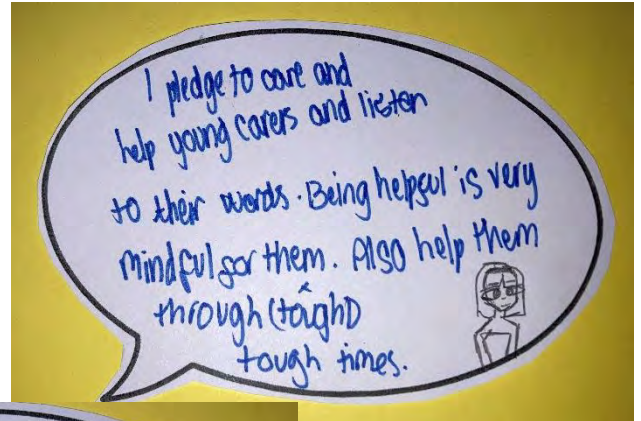 I pledge to care and
help young carers and listen
to their words. Being helpful is very
mindful for them. Also help them
through (taught)
tough times.